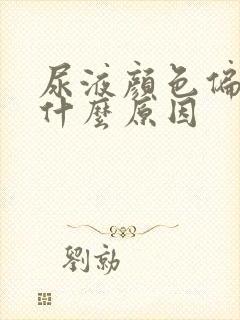 尿液顏色偏
什麼原因
劉勍